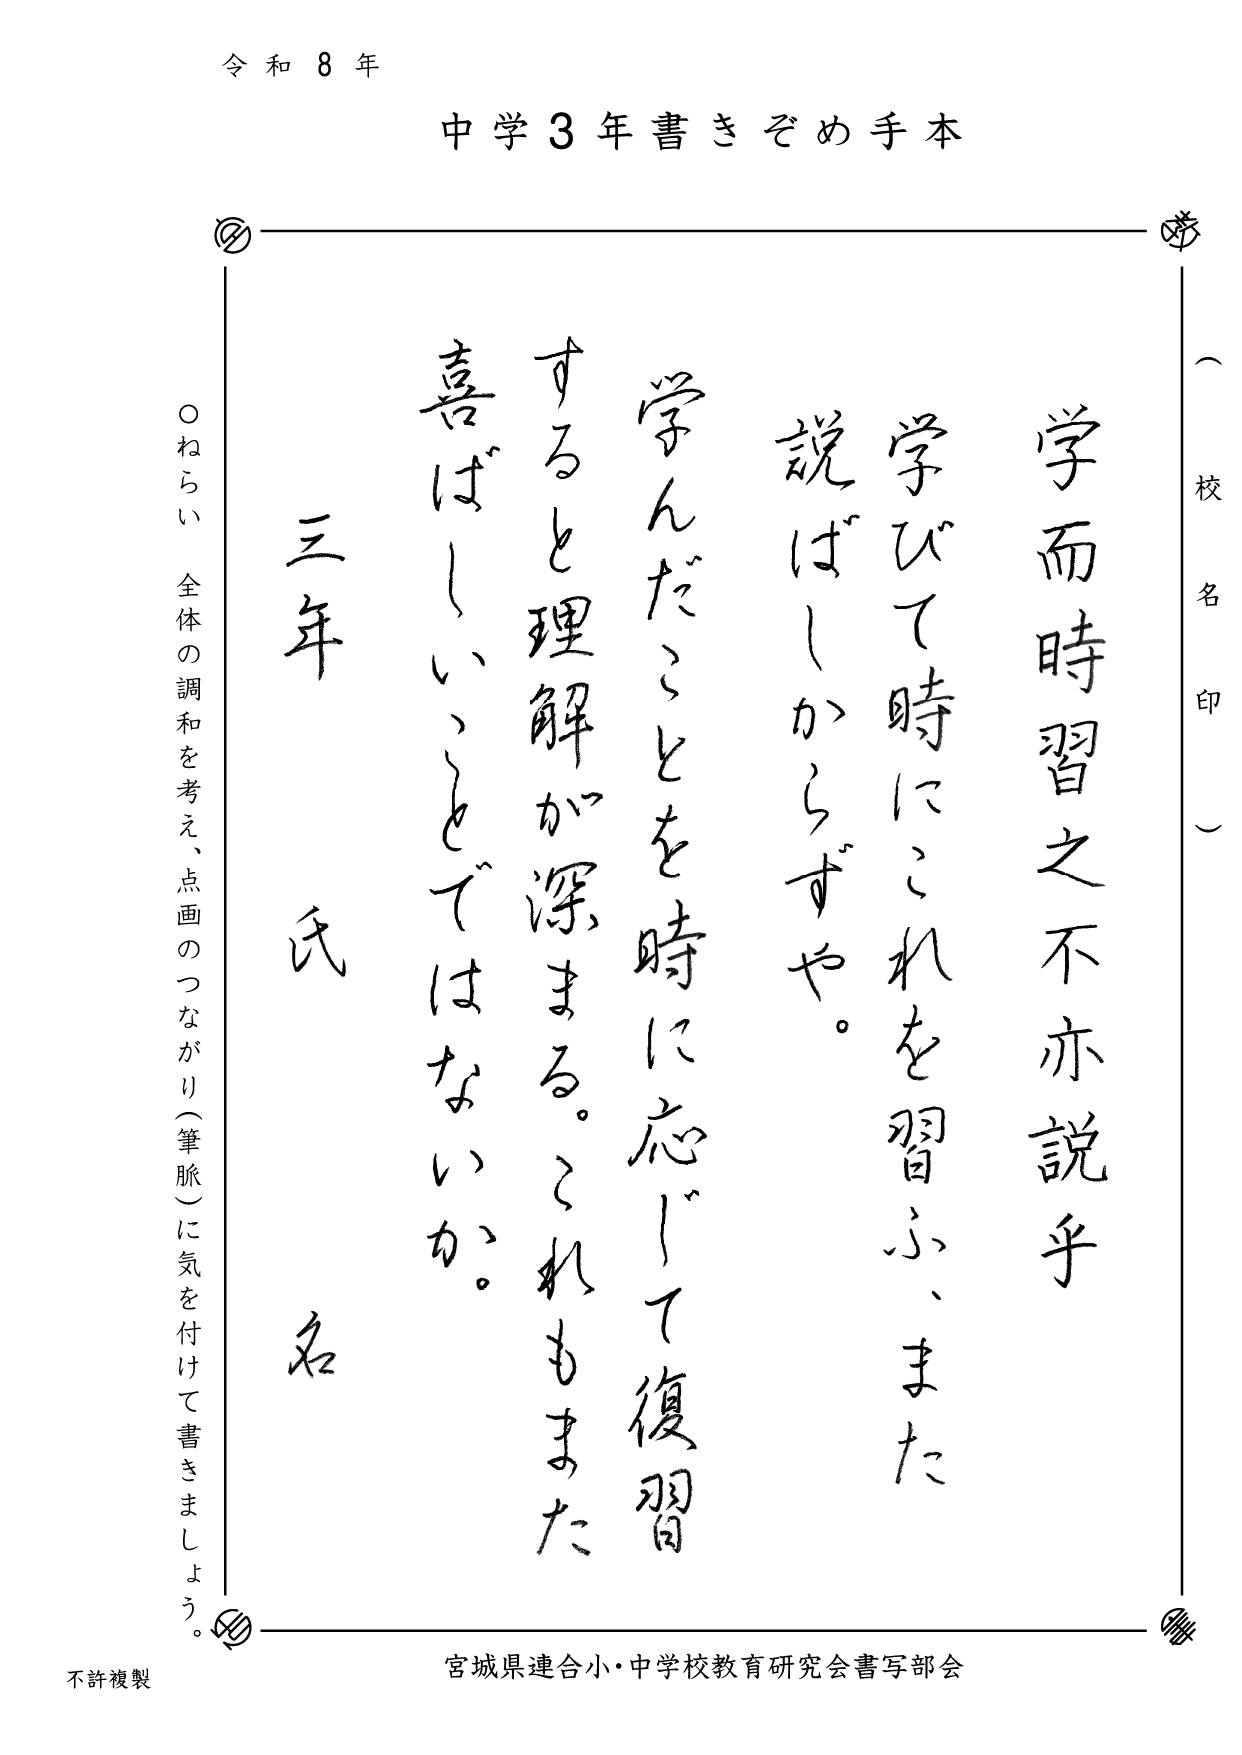 令和8年
中学3年書きぞめ手本
（校名印）
学而時習之不亦説乎
学びて時にこれを習ふ、また
説ばしからずや。
学んだことを時に応じて復習
すると理解が深まる。これもまた
喜ばしいことではないか。
三年 氏 名
○ねらい 全体の調和を考え、点画のつながり（筆脈）に気を付けて書きましょう。
宮城県連合小・中学校教育研究会書写部会
不許複製